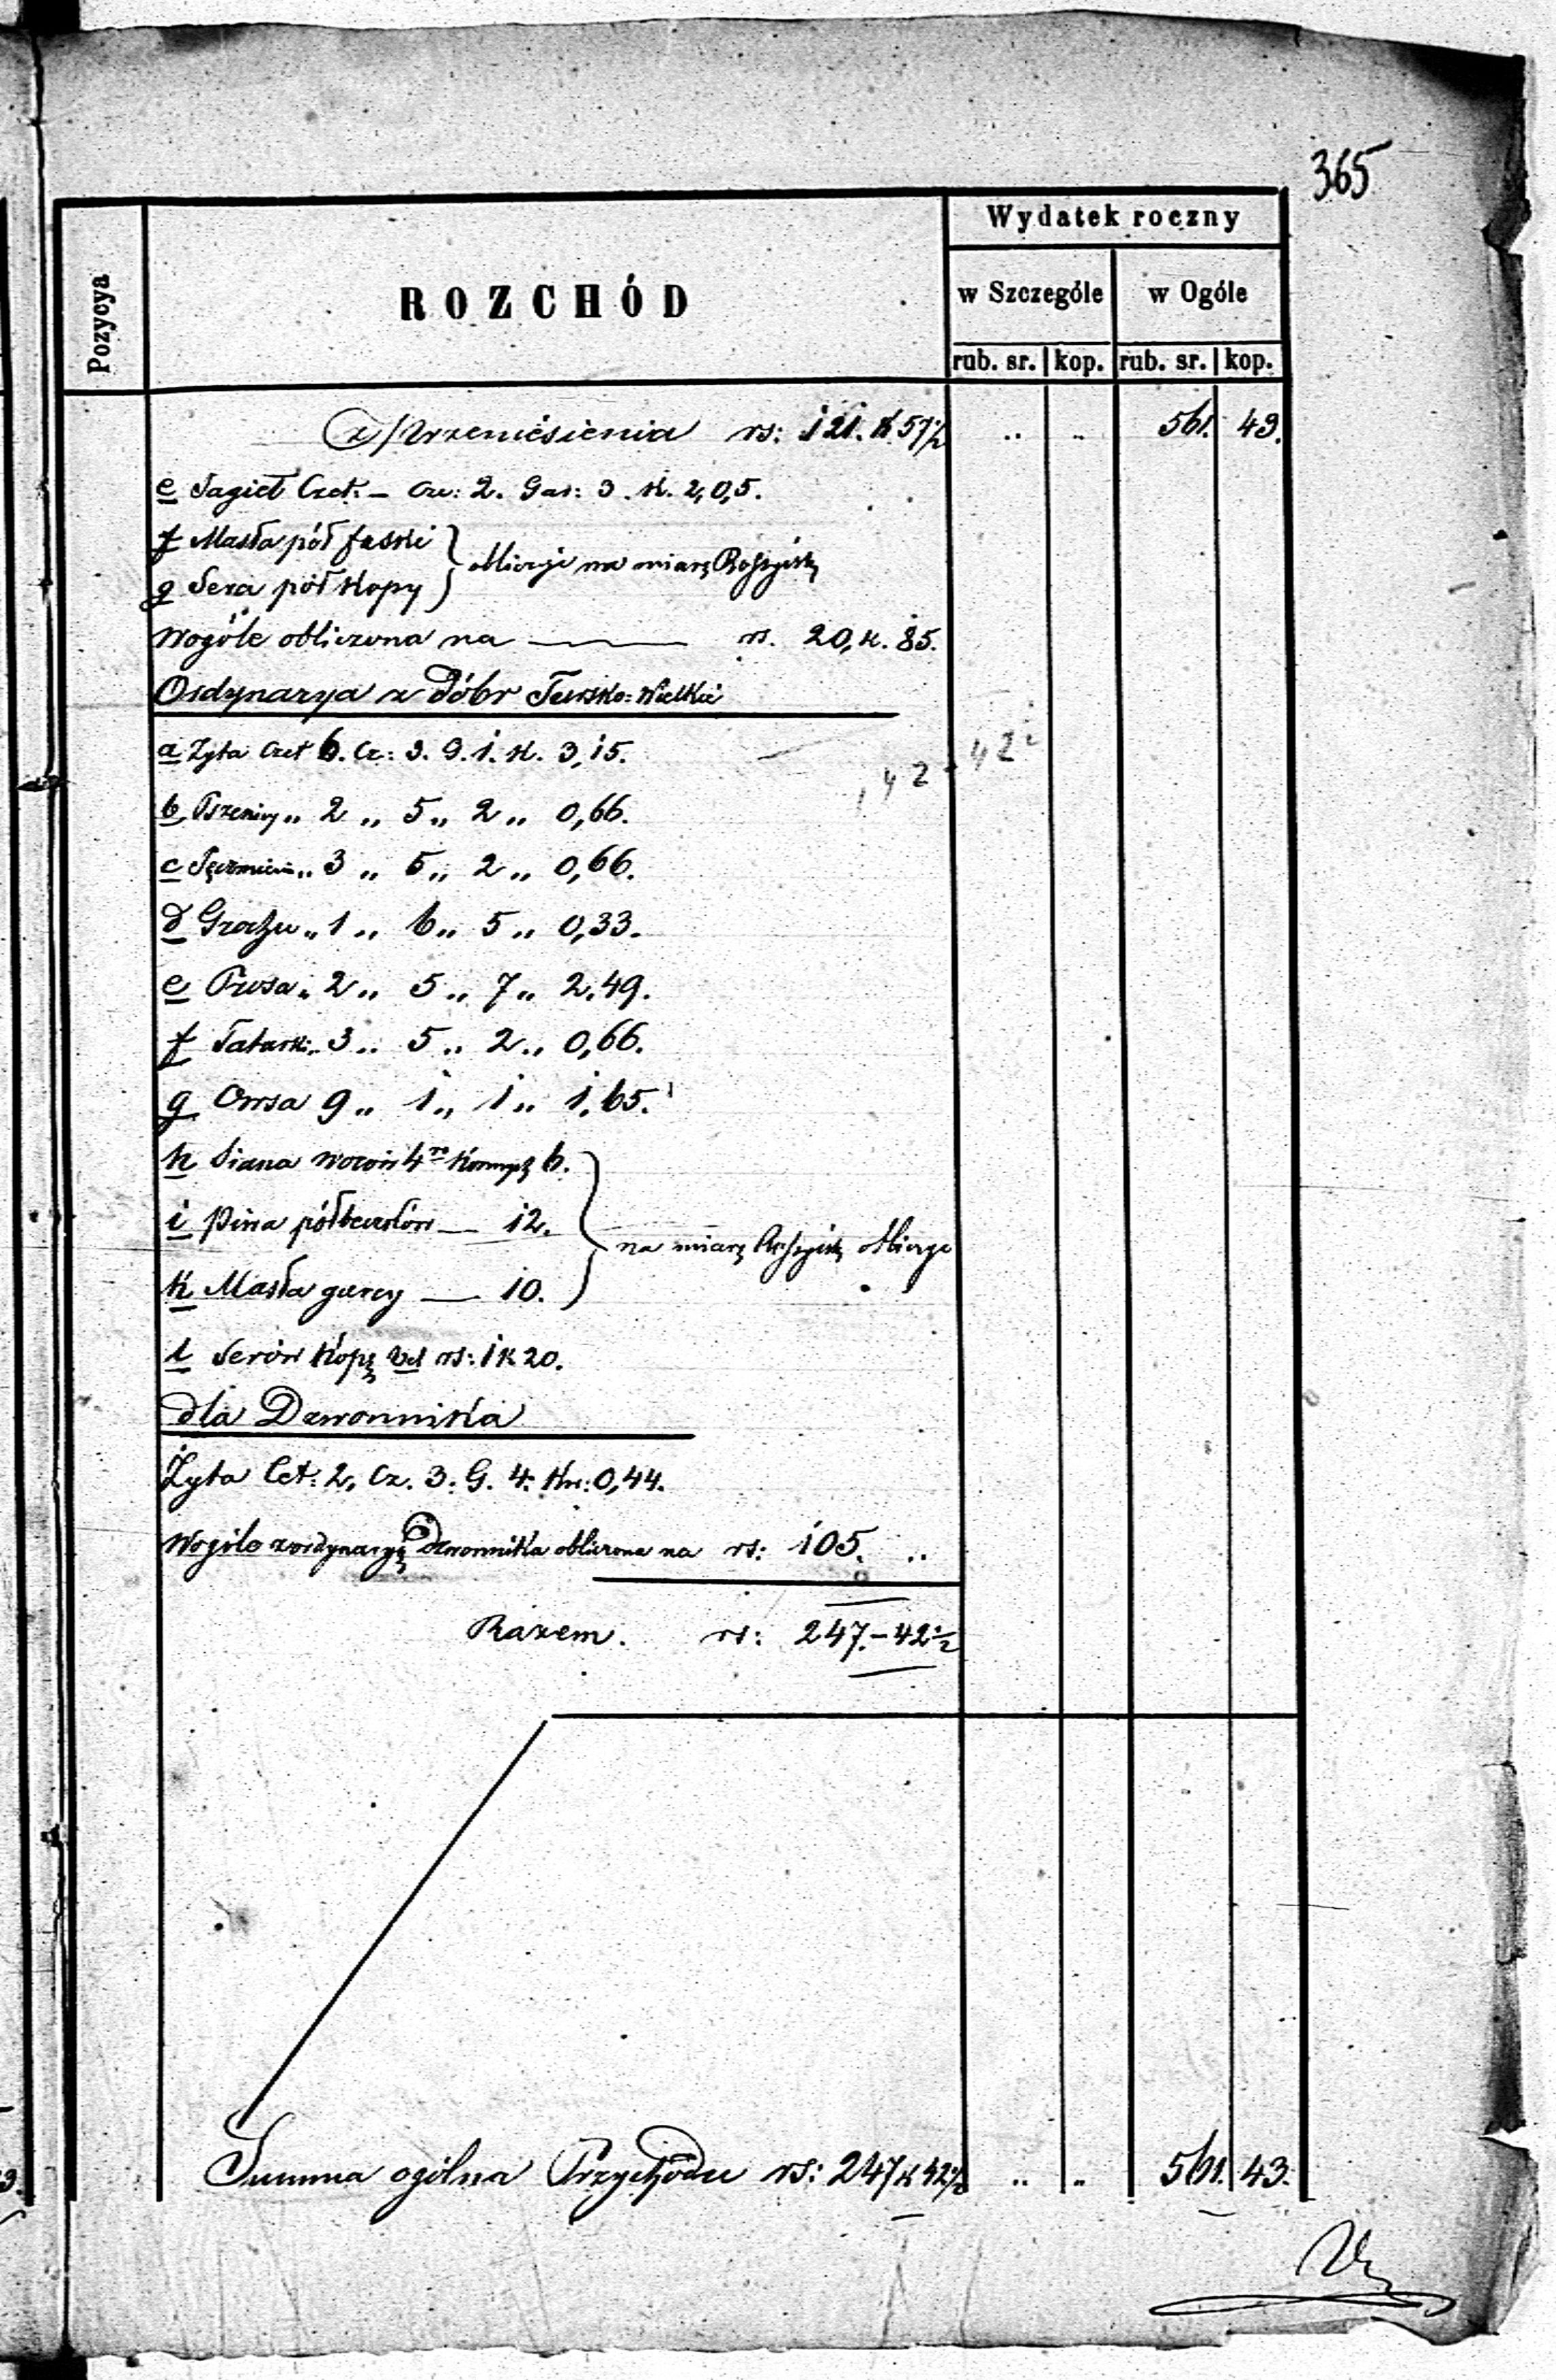 365
Pozycya
ROZCHÓD
Wydatek roczny
w Szczególe w Ogóle
rub. sr. kop. rub. sr. kop.
z Przeniesienia rs: 121. k 57½ .. .. 561. 43.
e Jagieł Czet: – Czw: 2. Gar: 3. K. 2,0,5.
f Masła pół faski
g Sera pół Kopy
na miarę Rossyiską
Wogóle obliczona na rs. 20, k. 85.
Ordynarya z Dóbr Tursko: Wielkie
a Żyta Czet 6. Cz: 3. G. 1. K. 3,15.
b Pszenicy „ 2 „ 5 „ 2 „ 0,66.
c Jęczmienia „ 3 „ 5 „ 2 „ 0,66.
d Grochu „ 1 „ 6 „ 5 „ 0,33.
e Prosa „ 2 „ 5 „ 7 „ 2,49.
f Tatarki „ 3 „ 5 „ 2 „ 0,66.
g Owsa 9 „ 1 „ 1 „ 1,65.
h Siana wozów 4ro konnych 6.
i Piwa półbeczków — 12.
na miarę Rossyiską
k Masła garcy — 10.
l Serów Kopę vel rs: 1 k 20.
dla Dzwonnika
Żyta Cet: 2, Cz. 3. G. 4. Kw: 0,44.
Wogóle z ordynaryą Dzwonnika obliczona na rs: 105. ..
Razem. rs: 247. – 42½
Summa ogólna Przychodu rs: 247 k 42½ .. .. 561. 43.